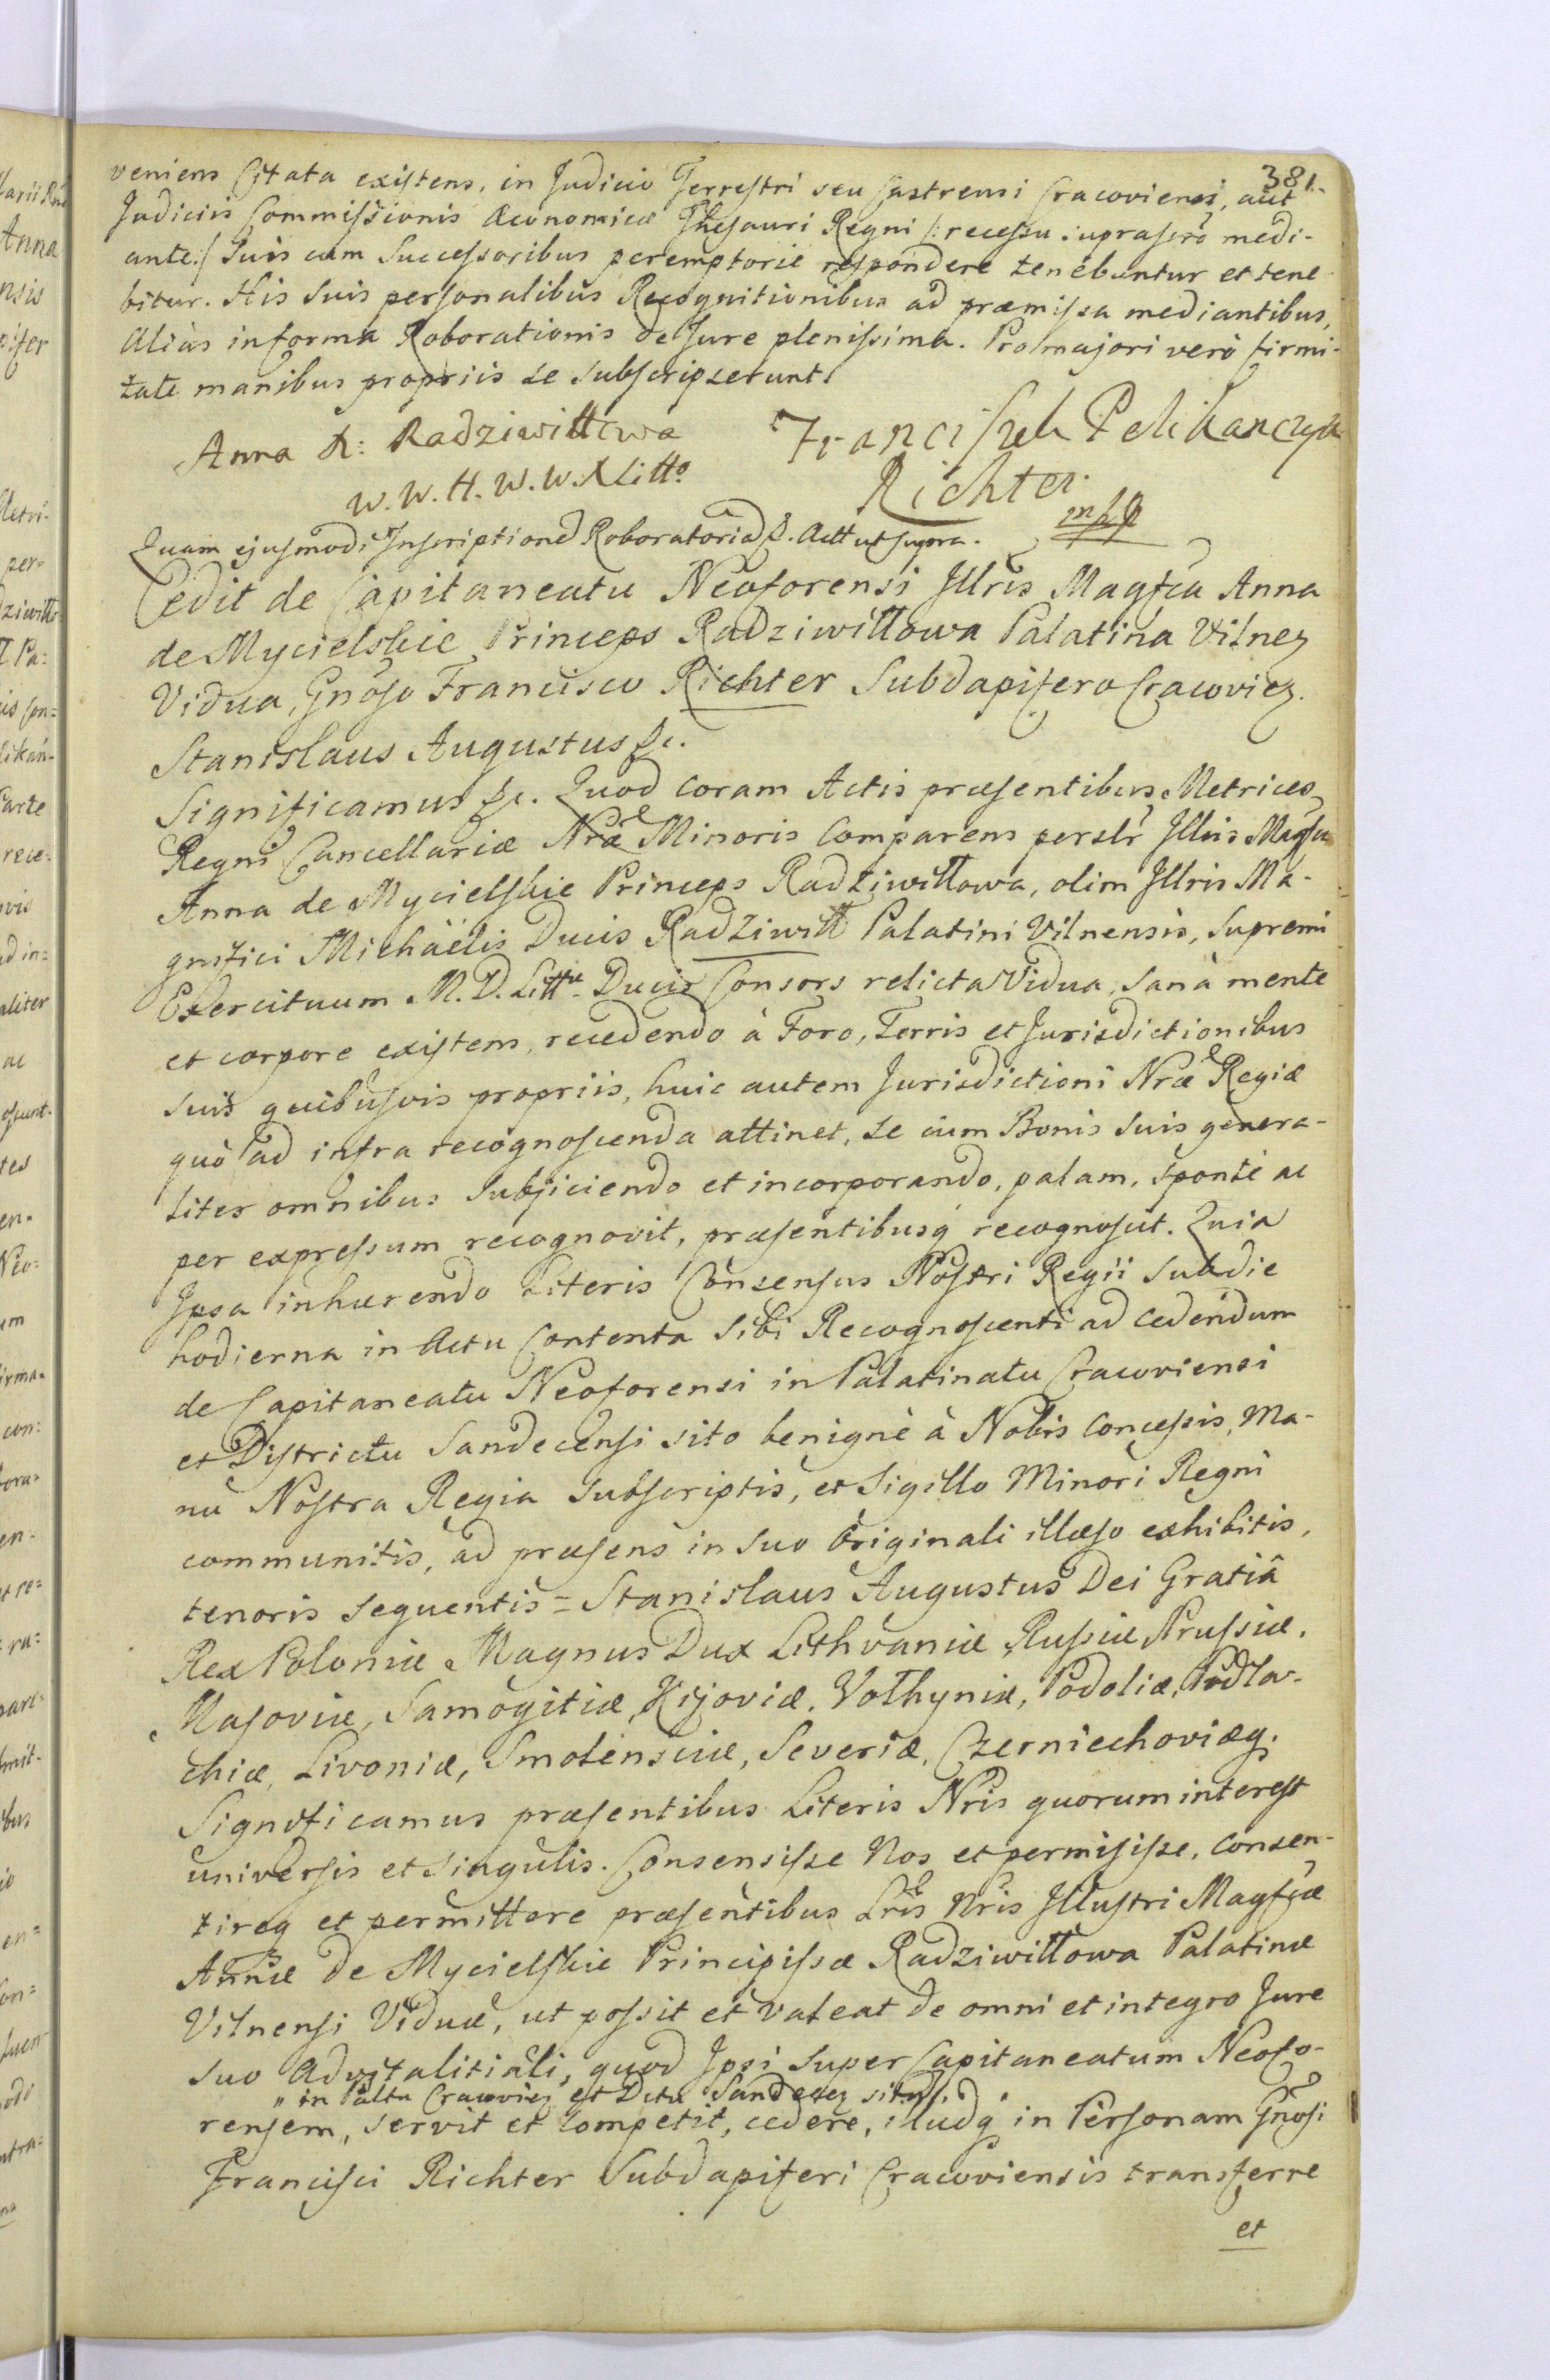 381.
veniens Citata existens, in Judicio Terrestri seu Castrensi Cracoviensi, aut
Judiciis Commissionis Œconomicæ Thesauri Regni /: recessu suprascro medi-
ante:/ Suis cum Successoribus peremptorie respondere tenebuntur et tene
bitur. His Suis personalibus Recognitionibus ad præmissa mediantibus,
Alias in forma Roborationis de Jure plenissima. Pro majori verò firmi-
tate manibus propriis se subscripserunt.
Anna X: Radziwiłłowa
W. W. H. W. W. X Litto
Franciszek Pelikanczyk
Richter
mpp
Quam ejusmodi Inscriptione Roboratoria &. Act ut supra.
Cedit de Capitaneatu Neoforensi Jllris Magfca Anna
de Mycielskie Princeps Radziwiłłowa Palatina Vilnen
Vidua, Gnoso Francisco Richter Subdapifero Cracovien.
Stanislaus Augustus &c.
Significamus &c. Quod coram Actis præsentibus Metrices
Regni Cancellariæ Nræ Minoris Comparens persltr Jllris Magfca
Anna de Mycielskie Princeps Radziwiłłowa, olim Jllris Ma-
gnifici Michaëlis Ducis Radziwiłł Palatini Vilnensis, Supremi
Exercituum M. D. Litt. Ducis Consors relicta Vidua, sanà mente
et corpore existens, recedendo à Foro, Terris et Jurisdictionibus
suis quibusvis propriis, huic autem Jurisdictioni Nræ Regiæ
quò ad infra recognoscenda attinet, se cum Bonis suis genera-
liter omnibus Subjiciendo et incorporando, palam, sponte ac
per expressum recognovit, præsentibusq recognoscit. Quia
Jpsa inhærendo Literis Consensus Nostri Regii sub die
hodierna in Actu Contenta Sibi Recognoscenti ad cedendum
de Capitaneatu Neoforensi in Palatinatu Cracoviensi
et Districtu Sandecensi sito benignè à Nobis Concessis, Ma-
nu Nostra Regia subscriptis, et Sigillo Minori Regni
communitis, ad præsens in Suo Originali illæso exhibitis,
tenoris sequentis = Stanislaus Augustus Dei Gratiâ
Rex Poloniæ Magnus Dux Lithvaniæ, Russiæ Prussiæ,
Masoviæ, Samogitiæ, Kijoviæ, Volhyniæ, Podoliæ, Podla-
chiæ, Livoniæ, Smolensciæ, Severiæ, Czerniechoviæq.
Significamus præsentibus Literis Nris quorum interest
universis et singulis. Consensisse Nos et permisisse, Consen-
tireq et permittere præsentibus Lris Nris Jllustri Magfcæ
Annæ de Mycielskie Principissæ Radziwiłłowa Palatinæ
Vilnensi Viduæ, ut possit et valeat de omni et integro Jure
suo Advitalitiali, quod Jpsi super Capitaneatum Neofo-
" in Paltu Cracovien et Dctu Sandecen situm.
rensem, servit et competit, cedere, illudq in Personam Gnosi
Francisci Richter Subdapiferi Cracoviensis transferre
et